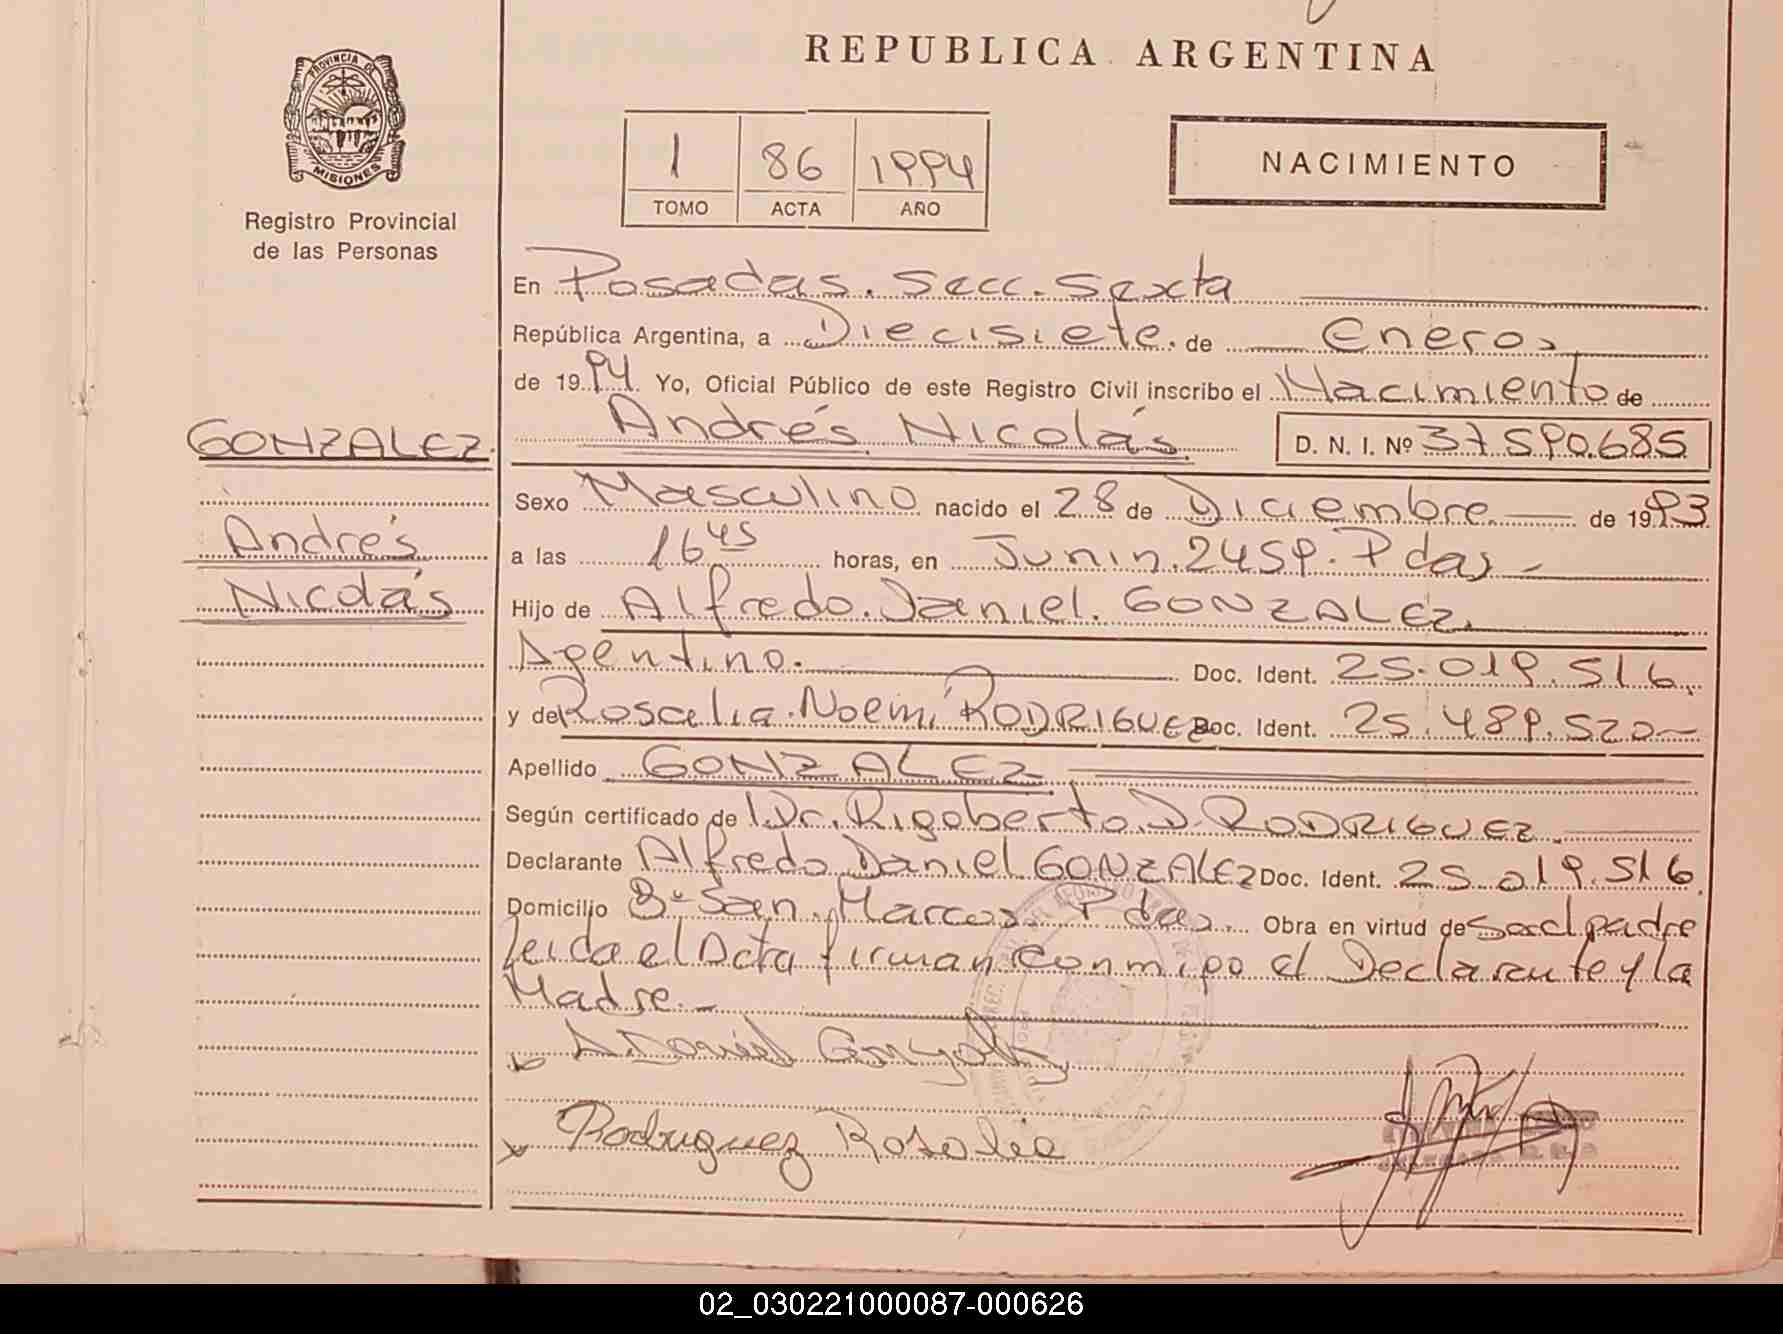 PROVINCIA DE
MISIONES
Registro Provincial
de las Personas
GONZALEZ.
Andrés
Nicolás
REPUBLICA ARGENTINA
1 86 1994
TOMO ACTA AÑO
NACIMIENTO
En Posadas. Secc. Sexta
República Argentina, a Diecisiete. de Enero,
de 1994. Yo, Oficial Público de este Registro Civil inscribo el Nacimiento de
Andrés Nicolás D. N. I. Nº 37.590.685
Sexo Masculino nacido el 28 de Diciembre de 1993
a las 16 45 horas, en Junin. 2459. Pdas -
Hijo de Alfredo. Daniel. GONZALEZ.
Agentino. Doc. Ident. 25.019.516.
y de Roscelia. Noemi RODRIGUEZ Doc. Ident. 25.489.520-
Apellido GONZALEZ
Según certificado de l Dr. Rigoberto. D. RODRIGUEZ
Declarante Alfredo Daniel GONZALEZ Doc. Ident. 25.019.516.
Domicilio Bº San. Marcos. Pdas. Obra en virtud de ser el padre
Leida el Acta firman conmigo el Declarante y la
Madre.-
A Daniel Gonzalez
Rodriguez Rosalia
02_030221000087-000626